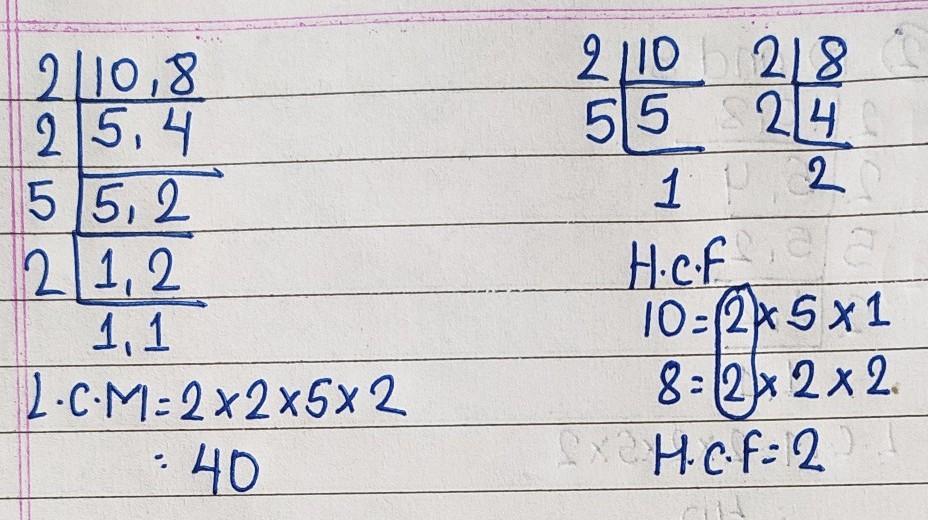 2 | 10, 8
2 | 5, 4
5 | 5, 2
2 | 1, 2
1, 1
L.C.M = 2 x 2 x 5 x 2
= 40
2 | 10
5 | 5
1
2 | 8
2 | 4
2
H.C.F
10 = 2 x 5 x 1
8 = 2 x 2 x 2
H.C.F = 2